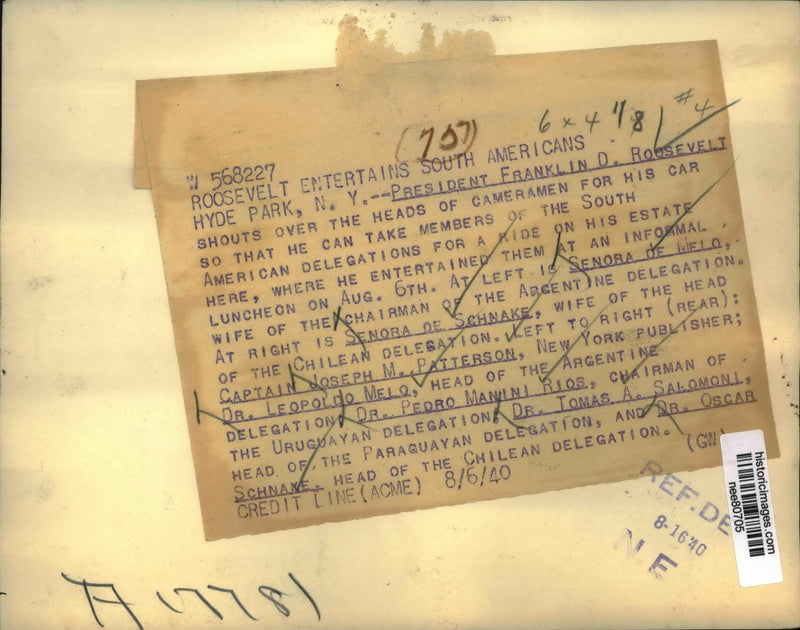 6 x 4 1/8 #4
(757)
W 568227
ROOSEVELT ENTERTAINS SOUTH AMERICANS
HYDE PARK, N. Y.--PRESIDENT FRANKLIN D. ROOSEVELT
SHOUTS OVER THE HEADS OF CAMERAMEN FOR HIS CAR
SO THAT HE CAN TAKE MEMBERS OF THE SOUTH
AMERICAN DELEGATIONS FOR A RIDE ON HIS ESTATE
HERE, WHERE HE ENTERTAINED THEM AT AN INFORMAL
LUNCHEON ON AUG. 6TH. AT LEFT IS SENORA DE MELO,
WIFE OF THE CHAIRMAN OF THE ARGENTINE DELEGATION.
AT RIGHT IS SENORA DE SCHNAKE, WIFE OF THE HEAD
OF THE CHILEAN DELEGATION. LEFT TO RIGHT (REAR):
CAPTAIN JOSEPH M. PATTERSON, NEW YORK PUBLISHER;
DR. LEOPOLDO MELO, HEAD OF THE ARGENTINE
DELEGATION; DR. PEDRO MANINI RIOS, CHAIRMAN OF
THE URUGUAYAN DELEGATION; DR. TOMAS A. SALOMONI,
HEAD OF THE PARAGUAYAN DELEGATION, AND DR. OSCAR
SCHNAKE, HEAD OF THE CHILEAN DELEGATION.
CREDIT LINE (ACME) 8/6/40 (GW)
REF. DE
8-16 40
N. E
historicimages.com
nee80705